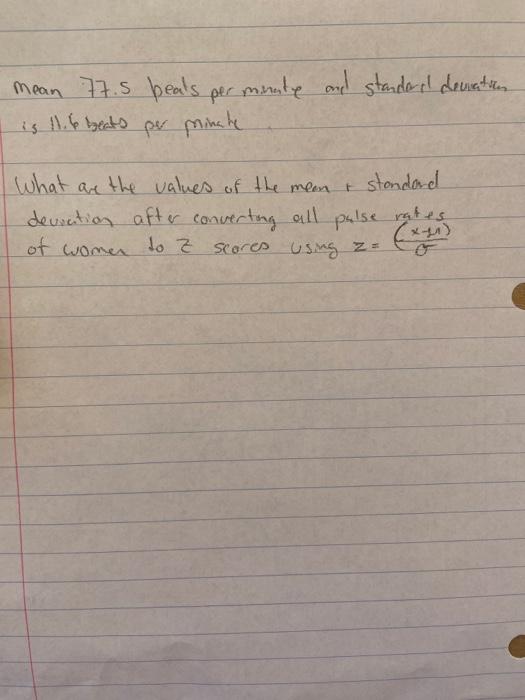 mean 77.5 beats per minute and standard deviation
is 11.6 beats per minute
What are the values of the mean + standard
deviation after converting all pulse rates
of women to Z scores using z = (x-μ)/σ